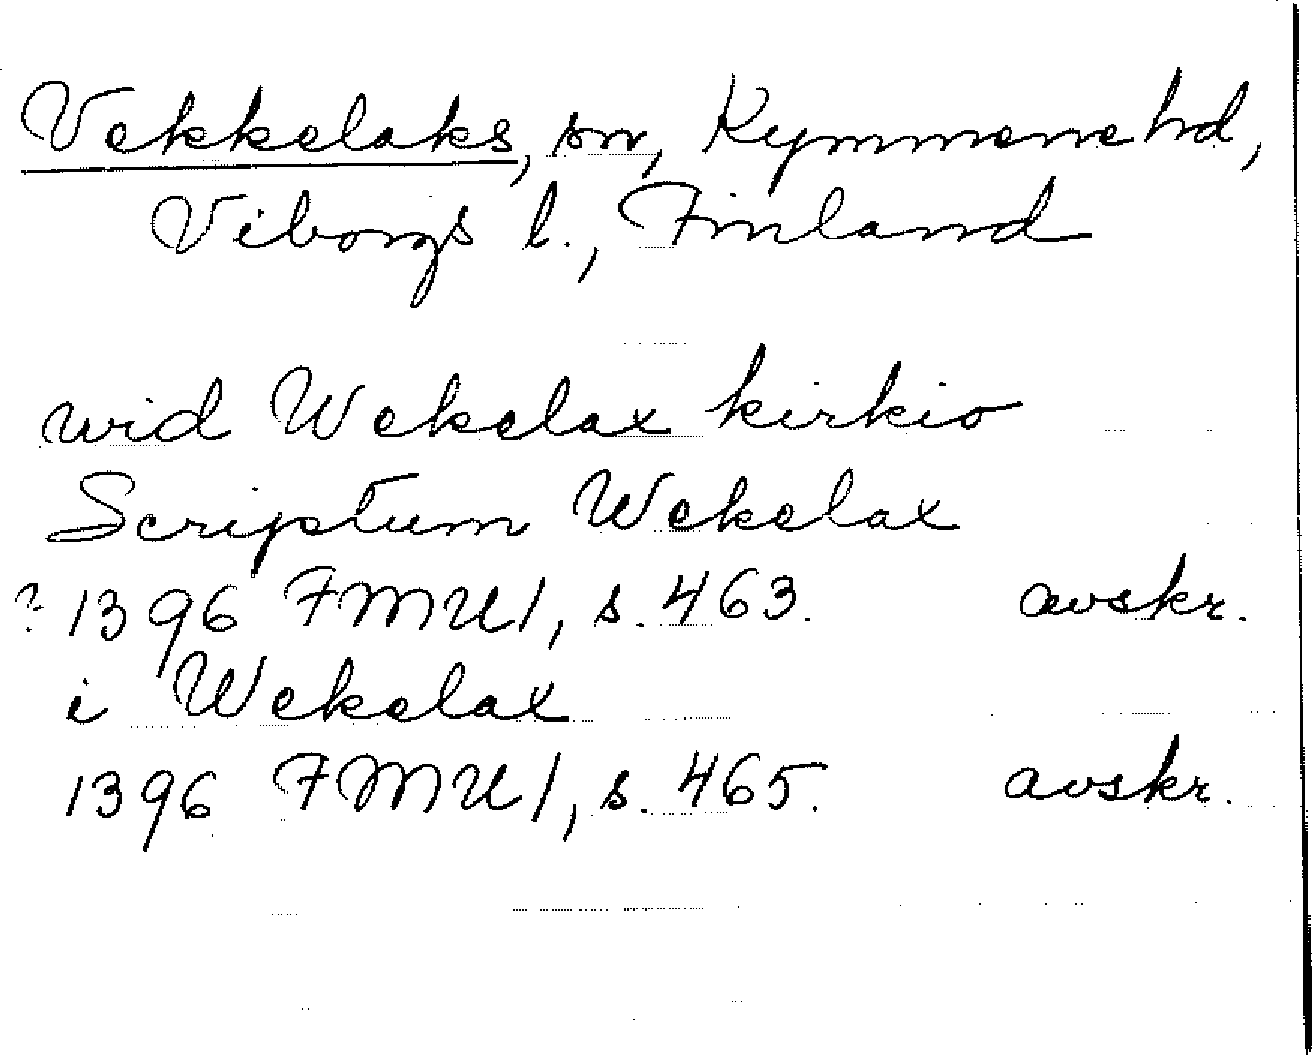 Vekkelaks, sn, Kymmene hd,
Viborgs l., Finland
wid Wekelax kirkio
Scriptum Wekelax
? 1396 FMU 1, s. 463. avskr.
i Wekelax
1396 FMU 1, s. 465. avskr.